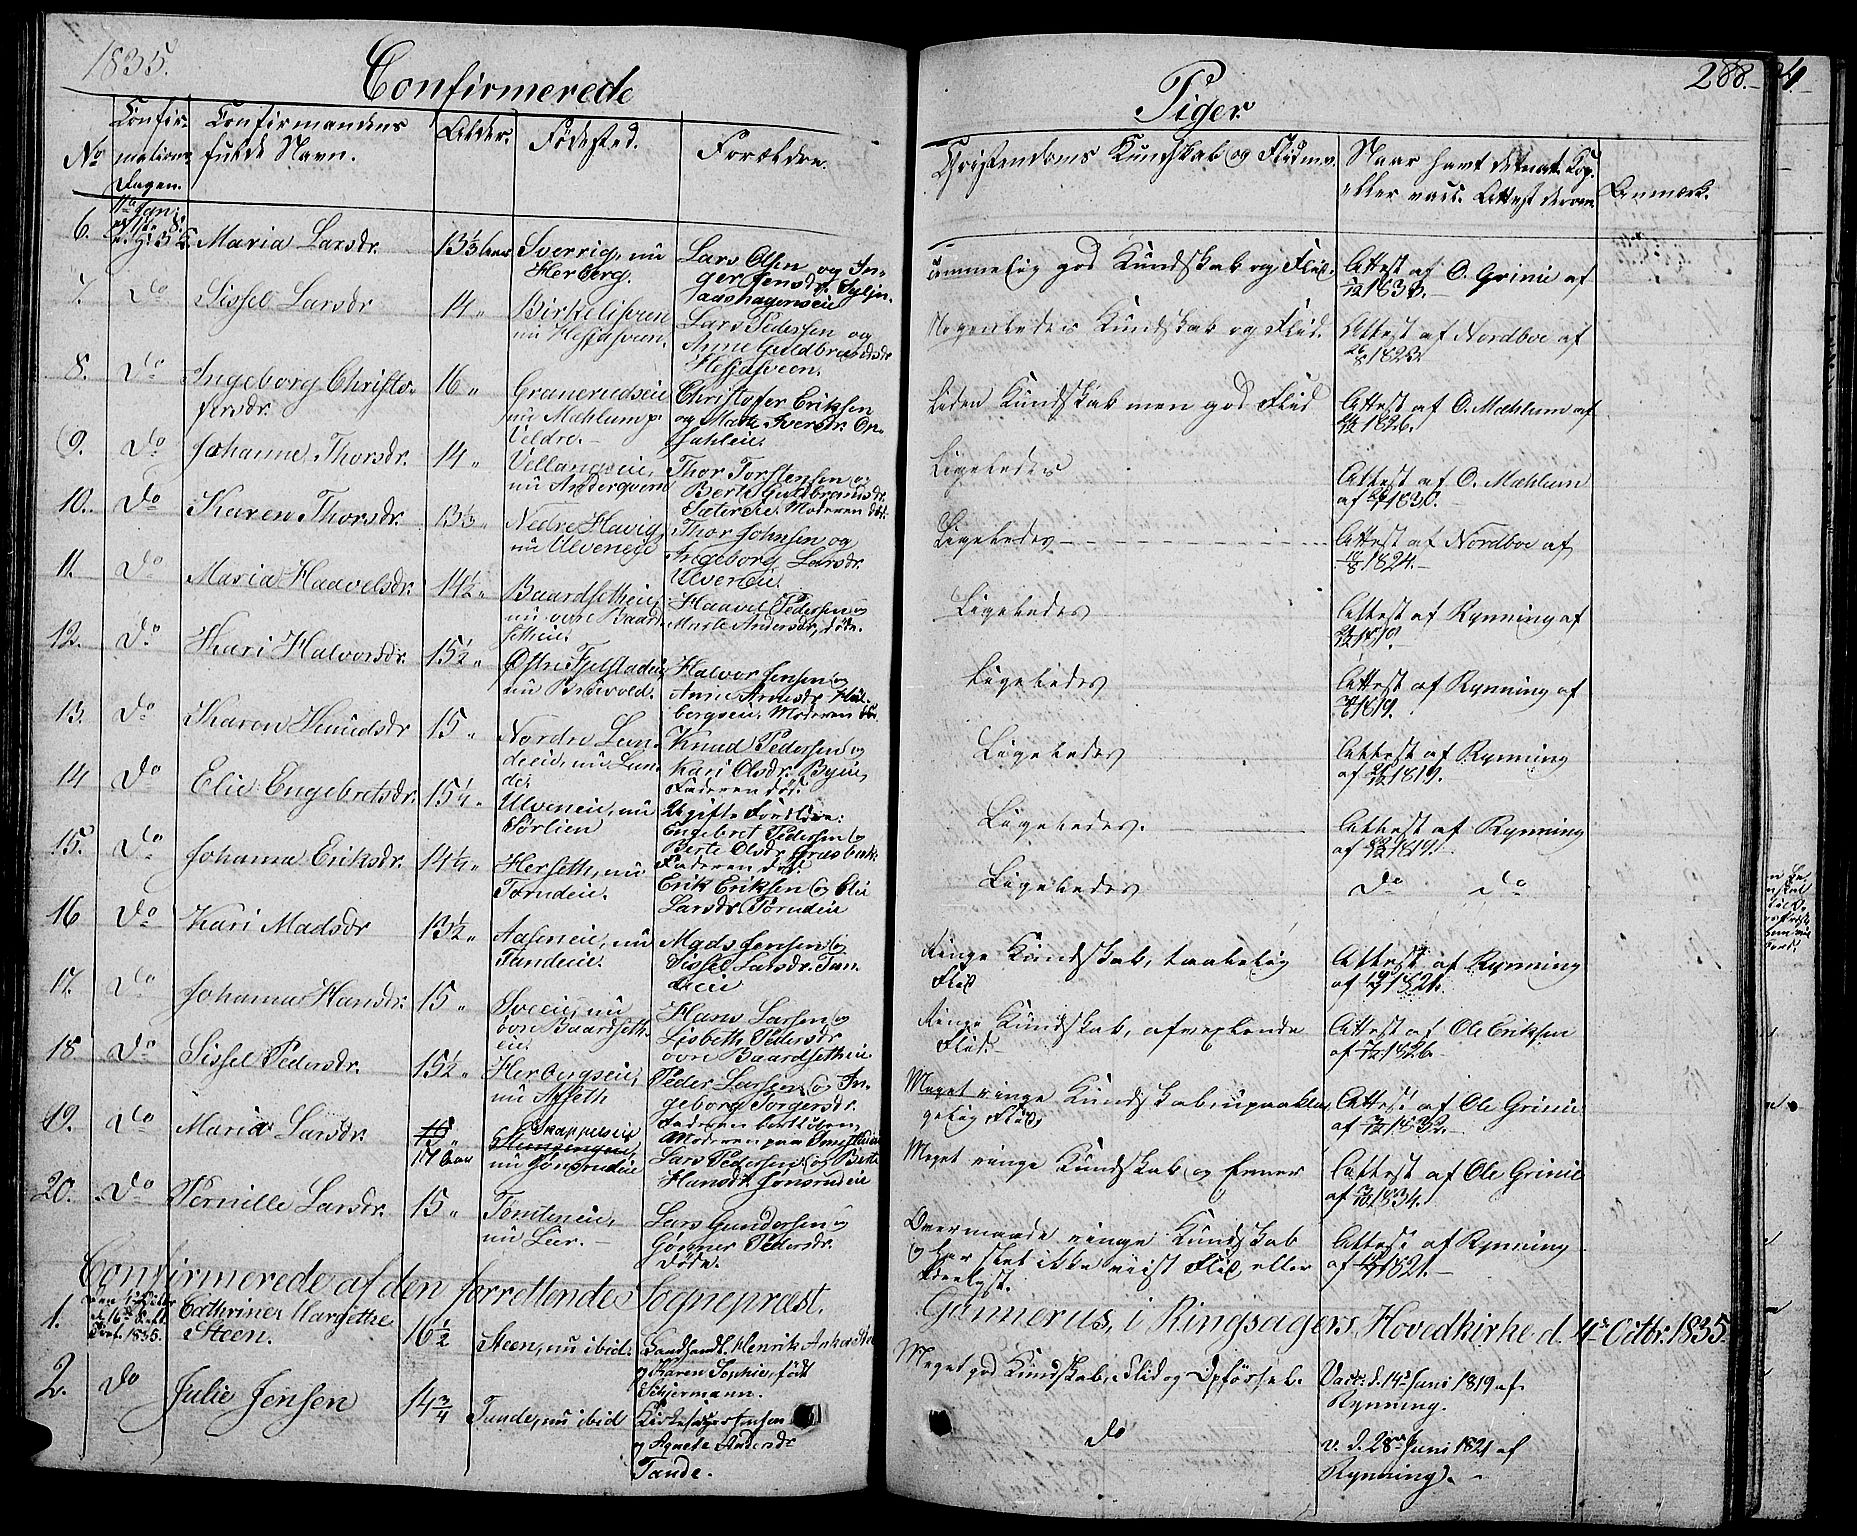 1835.
Confirmerede
Piger
288.
No
Confir-
mations
Dagen.
Confirmandens
fulde Navn.
Alder.
Fødested.
Forældre.
Christendoms Kundskab og Flid m.v.
Naar havt de nat. Kop.
eller vacc. Attest derom
Anmærk.
6. Maria Larsdr. 13½ Aar Sverrig, nu
Herberg.
Lars Olsen og In-
ger Jensdr.
temmelig god Kundskab og Flid.
Attest af O. Grinie af
1833.
7. Do Sissel Larsdr 14 "
Birkelisveen
nu Hessasveen.
Lars Pedersen og
Anne Guldbrandsdr
Hessasveen.
Nogenledes Kundskab og Flid.
Attest af Nordboe af
26/8 1823.
8. Do Ingeborg Christo-
fersdr. 16 "
Graneruedseie
nu Mæhlum p.
Veldre.
Christofer Eriksen
og Marte Iversdr.
liden Kundskab men god Flid
Attest af O. Mæhlum af
1826.
9. Do Johanne Thorsdr. 14 "
Vellangseie,
nu Anderqvern
Thor Torstensen og
Berte Guldbrandsdr.
Moderen død.
Ligeledes
Attest af O. Mæhlum
af 1830.
10. Do Karen Thorsdr. 13½ "
Nedre Havig,
nu Ulveneie
Thor Johnsen og
Ingeborg Larsdr.
Ulveneie.
Ligeledes
Attest af Nordboe af
18/8 1824.
11. Do Maria Haavelsdr. 14½ "
Baardsetheie,
nu øvre Baard-
setheie.
Haavel Pedersen og
Marte Andersdr, døde.
Ligeledes
Attest af Rynning af
12. Do Kari Halvorsdr. 15½ "
Østre Fjelstadeie,
nu Brøvold.
Halvor Jensen og
Anne Arnesdr. Hæl-
bergseie. Moderen død.
Ligeledes
Attest af Rynning af
1819.
13. Do Karen Knudsdr 15 "
Nordre Lun-
deeie, nu Lun-
de.
Knud Pedersen og
Kari Olsdr. Byeie,
Faderen død.
Ligeledes
Attest af Rynning
af 1819.
14 Do Elie Engebretsdr. 15¼ "
Ulveneie, nu
Sørlien
Ugifte Forældre:
Engebret Pedersen og
Berte Olsdr. Græsbæk.
Faderen død.
Ligeledes.
Attest af Rynning
af 1819.
15. Do Johanna Eriksdr. 14¼ "
Herseth, nu
Tørudeie.
Erik Eriksen og Elie
Larsdr. Tørudeie
Ligeledes
Do Do
16 Do Kari Madsdr 13½ "
Aaseneie, nu
Tandeeie.
Mads Jensen og
Sissel Larsdr. Tan-
deeie
Ringe Kundskab, taalelig
Flid
Attest af Rynning
af 1821.
17. Do Johanna Hansdr. 15 "
Sveeie, nu
øvre Baardseth-
eie.
Hans Larsen og
Lisbeth Pedersdr.
øvre Baardsetheie
Ringe Kundskab, afvexlende
Flid.
Attest af Ole Eriksen
af 1826.
18 Do Sissel Pedersdr. 15½ "
Herbergseie,
nu Asseth
Peder Larsen og In-
geborg Torgersdr.
Meget ringe Kundskab, upaakla-
gelig Flid.
Attest af Ole Grinie
af 1832.
19. Do Maria Larsdr. 15 "
17 Aar
Skappelseie
nu Jønsrudeie
Lars Pedersen og Berte
Hansdr. Jønsrudeie
Meget ringe Kundskab og Evner
Attest af Ole Grinie
af 1834.
20. Do Pernille Larsdr. 15 "
Tømteneie,
nu Lier.
Lars Gundersen og
Gønner Pedersdr.
Døde.
Overmaade ringe Kundskab
og har slet ikke viist Flid eller
Lærelyst.
Attest af Rynning
af 1821.
Confirmerede af den forrettende Sognepræst.
Gunnerus, i Ringsagers Hovedkirke d. 4de Octbr. 1835.
1. Cathrine Margrethe
Steen. 16½ Steen, nu ibid.
Henrik Anker Steen
og Karen Sophie, født
Schiermann.
Meget god Kundskab, Flid og Opførsel.
Vacc. d. 14de Juni 1819 af
Rynning.
2. Do Julie Jensen 14¾ Tande, nu ibid
Kirkesanger Jensen
og Agnete Andersdr
Tande.
do
v. d. 28de Juni 1821 af
Rynning.